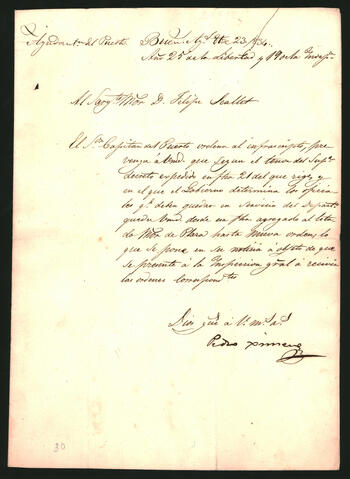 Ayudant.ª del Puerto
Buen.ˢ Ay.ˢ 23/34.
Año 25 de la Libertad y 19 de la Indep.ª
Al Sarg.ᵗᵒ Mor D. Felipe
El S.ᵒʳ Capitan del Puerto ordena al infrascripto, pre
venga a Vmd. que segun el tenor del Sup.ʳ
decreto expedido en fha 21 del que rige, y
en el que el Gobierno determina los oficia
les q.ᵉ deben quedar en servicio del Depart.ᵗᵒ
queda Vmd. desde su fha agregado al Esta
do Mor de Plaza hasta nueva orden; lo
que se pone en su noticia a objeto de que
se presente à la Inspeccion gral à recivir
las ordenes correspond.ᵗᵉˢ
Dios gue à V. m.ˢ a.ˢ
Pedro Ximeno
30